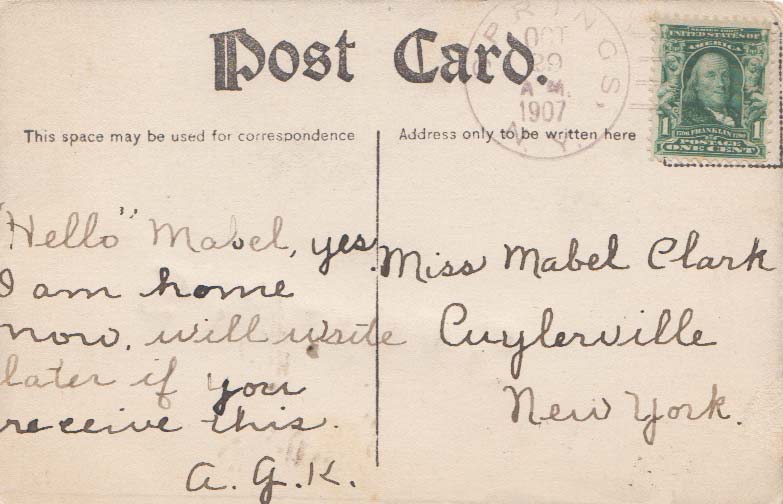 Post Card.
This space may be used for correspondence
Address only to be written here
"Hello" Mabel, yes
I am home
now, will write
later if you
receive this.
A. G. K.
Miss Mabel Clark
Cuylerville
New York.
PRINGS,
OCT
29
A M.
1907
N. Y.
SERIES 1902
UNITED STATES OF
AMERICA
1
1
1706 FRANKLIN 1790
POSTAGE
ONE CENT